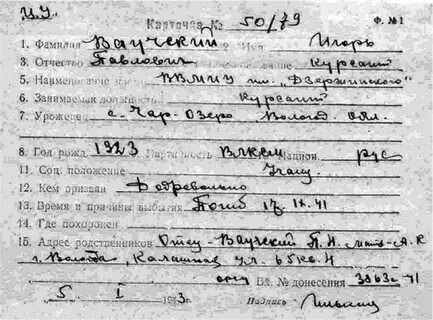 Карточка № 50/79 Ф. №1
1. Фамилия Ваучский 2. Имя Игорь
3. Отчество Павлович звание Курсант
5. Наименование ВВМИУ им. „Дзержинского"
6. Занимаемая должность Курсант
7. Уроженец с. Чар. Озеро Вологод. обл.
8. Год рожд. 1923 Партийность ВЛКСМ Национ. рус
11. Соц. положение Учащ
12. Кем призван Добровольно
13. Время и причины выбытия Погиб 17. IX. 41
14. Где похоронен
15. Адрес родственников Отец-Ваучский П. И. мать-А. К
г. Вологда, ул. 65 кв. 4
Вх. № донесения 3963 41
5 I 1943г. Подпись